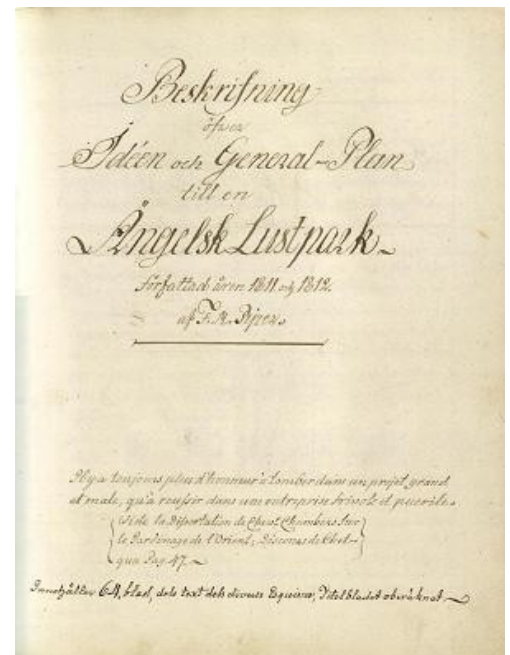 Beskrifning
öfver
Idéen och General-Plan
till en
Ängelsk Lustpark
författad åren 1811 och 1812.
af F. M. Piper.
Il y a toujours plus d'honneur à tomber dans un projet grand
et male, qu'à reussir dans une entreprise frivole et puerile.
Vide la Dissertation de Chev. Chambers sur
le Jardinage de l'Orient; Discours de Chet-
qua Pag. 47.
Innehåller 64, blad, dels text dels diverse Esquisser, Titelbladet oberäknat.